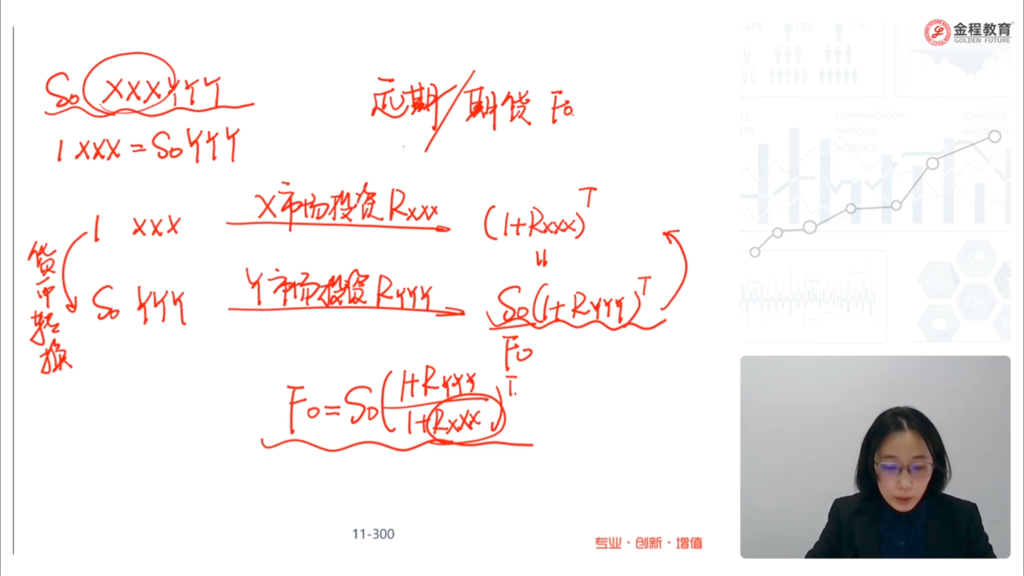 金程教育
GOLDEN FUTURE
S₀ XXXYYY
1 XXX = S₀ YYY
远期/期货 F₀
1 XXX X市场投资 Rxxx (1+Rxxx)^T
货币转换
=
S₀ YYY Y市场投资 Ryyy S₀(1+Ryyy)^T
F₀
F₀ = S₀((1+Ryyy)/(1+Rxxx))^T
11-300
专业·创新·增值